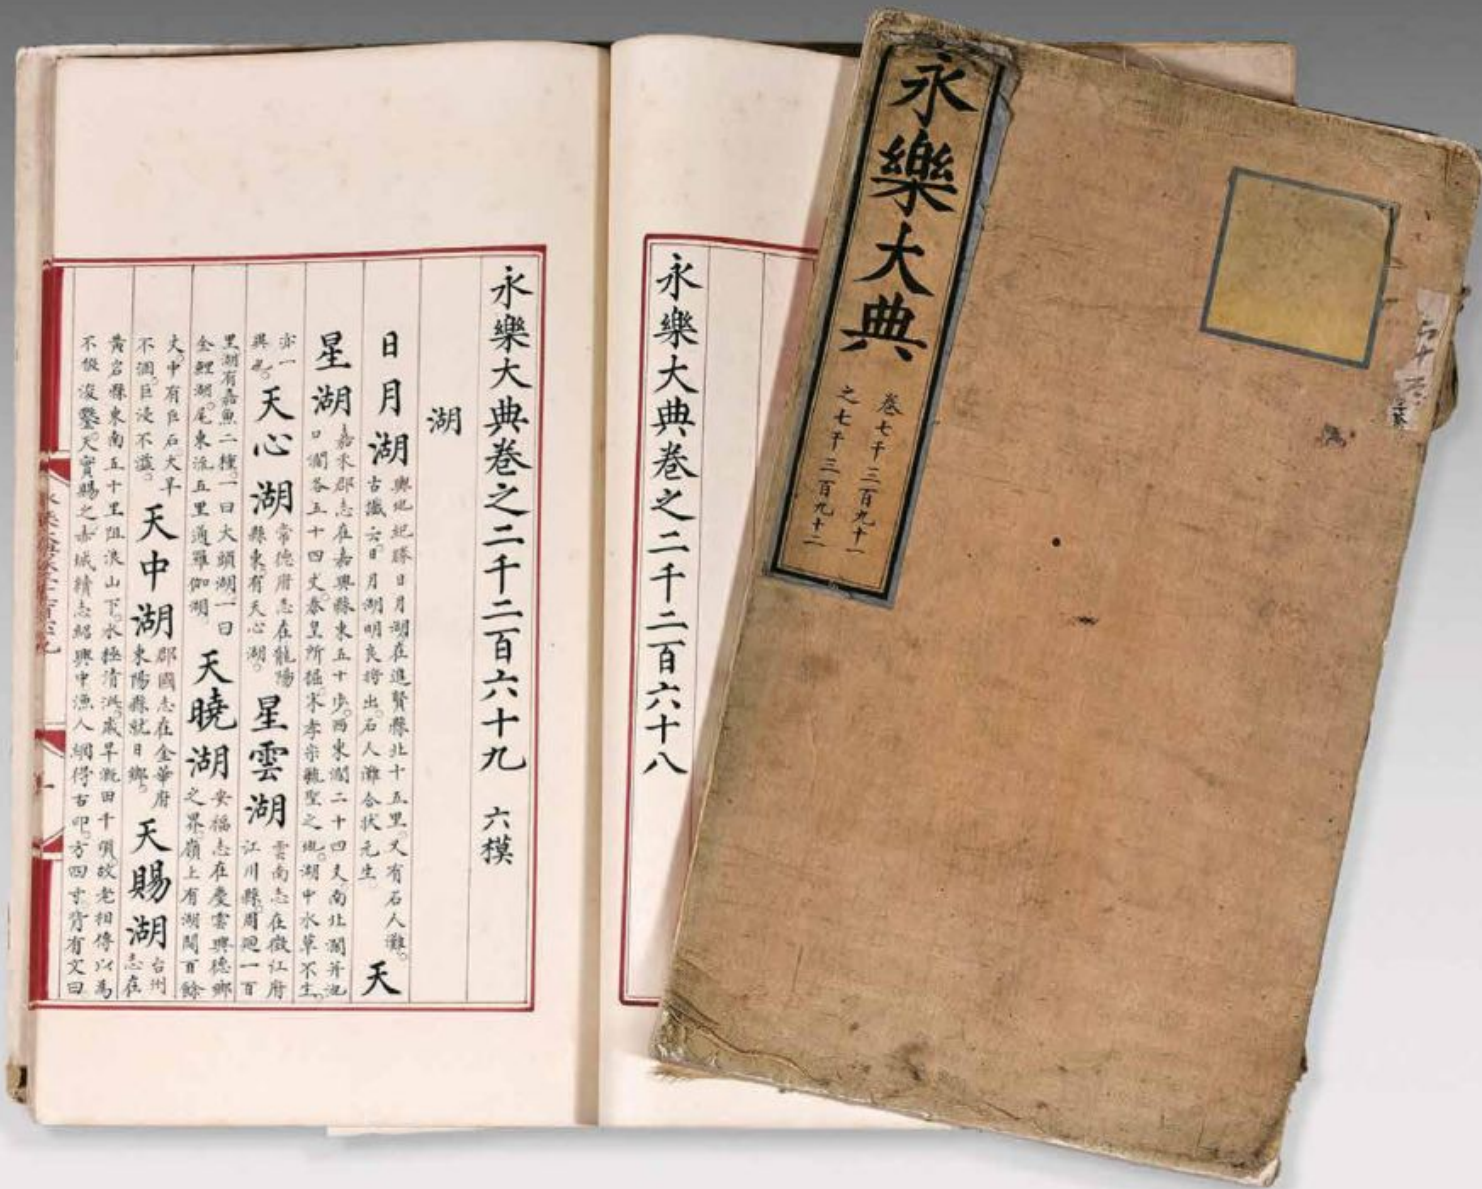 永樂大典
卷七千三百九十一
之七千三百九十二
永樂大典卷之二千二百六十八
永樂大典卷之二千二百六十九 六模
湖
日月湖
輿地紀勝日月湖在進賢縣北十五里。又有石人灘。
古讖云。日月湖明良將出。石人灘合狀元生。
天
星湖
嘉禾郡志在嘉興縣東五十步。西東濶二十四丈。南北濶并池
口濶各五十四丈。秦皇所掘。宋孝宗毓聖之地。湖中水草不生。
亦一
異也。
天心湖
常德府志在龍陽
縣東。有天心湖。
星雲湖
雲南志在徵江府
江川縣。周迴一百
里。湖有嘉魚二種。一曰大頭湖一曰
金鯉湖。尾東流五里通羅伽湖
天曉湖
安福志在慶雲興德鄉
之界。嶺上有湖闊百餘
丈。中有巨石大旱
不涸。巨浸不溢。
天中湖
郡國志在金華府
東陽縣就日鄉。
天賜湖
台州
志在
黃岩縣東南五十里阻浪山下。水極清泚。歲旱溉田千頃。故老相傳以為
不假浚鑿。天實賜之。赤城續志紹興中漁人網得古印。方四寸。背有文曰